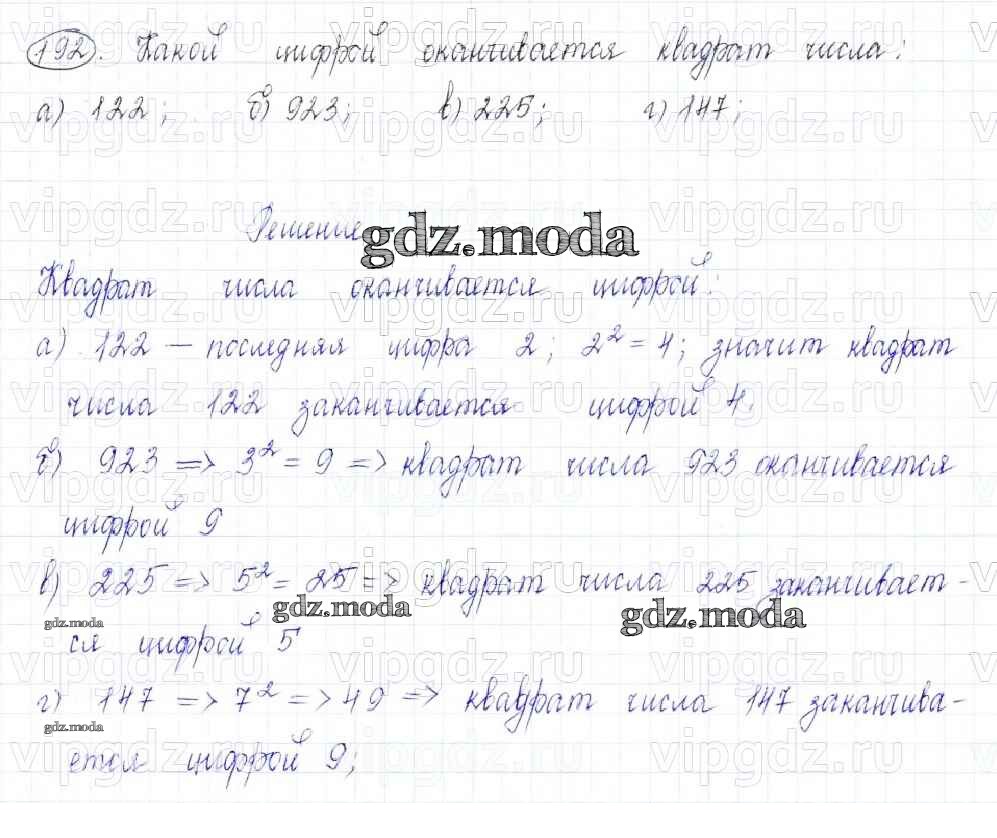 192. Какой цифрой оканчивается квадрат числа:
а) 122; б) 923; в) 225; г) 147;
Решение
gdz.moda
Квадрат числа оканчивается цифрой:
а) 122 — последняя цифра 2; 2² = 4; значит квадрат
числа 122 заканчивается цифрой 4.
б) 923 => 3² = 9 => квадрат числа 923 оканчивается
цифрой 9
в) 225 => 5² = 25 => квадрат числа 225 заканчивает-
gdz.moda
gdz.moda
gdz.moda
ся цифрой 5
г) 147 => 7² => 49 => квадрат числа 147 заканчива-
gdz.moda
ется цифрой 9;
vipgdz.ru